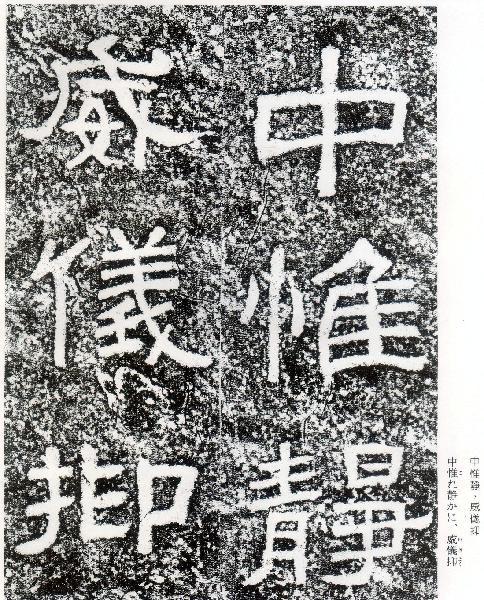 中惟靜
威儀抑
中惟靜・威儀抑
中惟れ靜かに、威儀抑